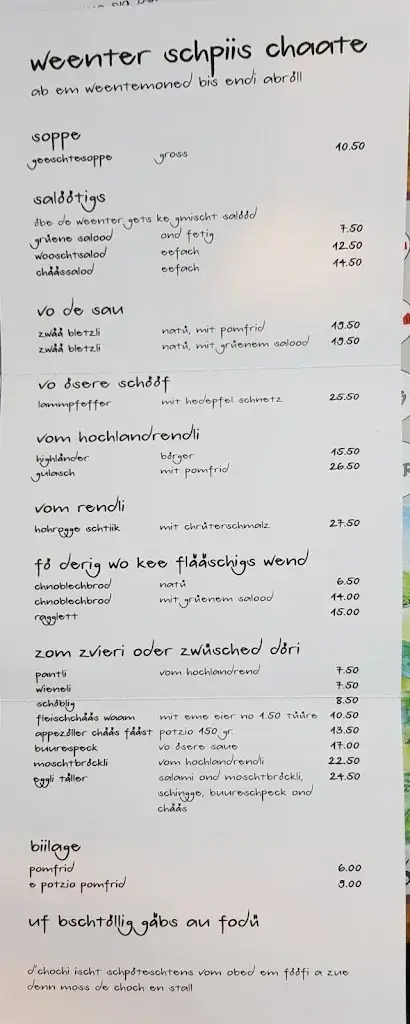 weenter schpiis chaate
ab em weentemoned bis endi abrőll
soppe
geeschtesoppe gross 10.50
salőőtigs
őbe de weenter gets ke gmischt salőőd
grůene salood ond fetig 7.50
wooschtsalod eefach 12.50
chååssalod eefach 14.50
vo de sau
zwåå bletzli natů, mit pomfrid 19.50
zwåå bletzli natů, mit grůenem salood 19.50
vo ősere schőőf
lammpfeffer mit hedepfel schnetz 25.50
vom hochlandrendli
highlånder bőrger 15.50
gulasch mit pomfrid 26.50
vom rendli
hohregge schtiik mit chrůterschmalz 27.50
fő derig wo kee flååschigs wend
chnoblechbrod natů 6.50
chnoblechbrod mit grůenem salood 14.00
ragglett 15.00
zom zvieri oder zwůsched dőri
pantli vom hochlandrend 7.50
wieneli 7.50
schőblig 8.50
fleischchåås waam mit eme eier no 1.50 tůůre 10.50
appezőller chåås fååst potzio 150 gr. 13.50
buurespeck vo ősere saue 17.00
moschtbrőckli vom hochlandrendli 22.50
eggli tåller salami ond moschtbrőckli, 24.50
schingge, buureschpeck ond
chåås
biilage
pomfrid 6.00
e potzio pomfrid 9.00
uf bschtőllig gåbs au fodů
d'chochi ischt schpőteschtens vom obed em főőfi a zue
denn moss de choch en stall